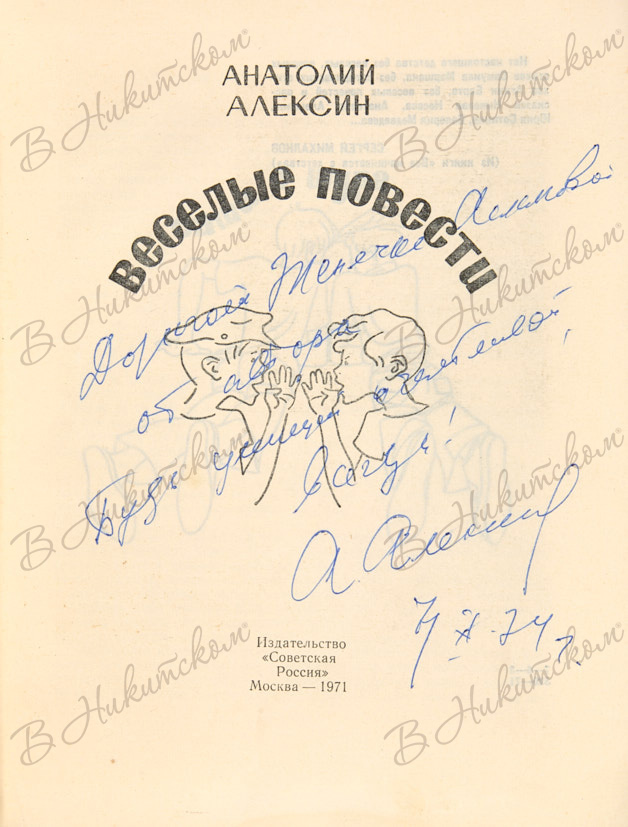 АНАТОЛИЙ
АЛЕКСИН
ВЕСЕЛЫЕ ПОВЕСТИ
Дорогой Женечке
от автора
Будь умницей
всегда!
А. Алексин
X 74 г.
Издательство
«Советская
Россия»
Москва — 1971
В Никитском®
В Никитском®
В Никитском®
В Никитском®
В Никитском®
В Никитском®
В Никитском®
В Никитском®
В Никитском®
В Никитском®